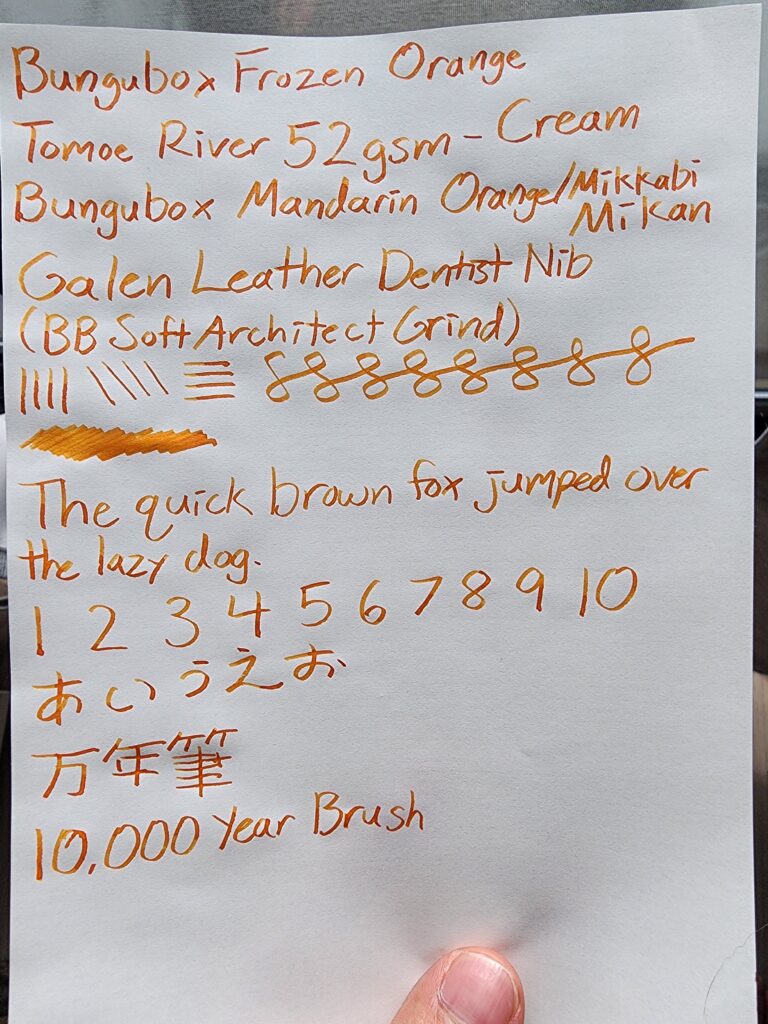 Bungubox Frozen Orange
Tomoe River 52gsm - Cream
Bungubox Mandarin Orange/Mikkabi
Mikan
Galen Leather Dentist Nib
(BB Soft Architect Grind)
The quick brown fox jumped over
the lazy dog.
1 2 3 4 5 6 7 8 9 10
あいうえお
万年筆
10,000 Year Brush